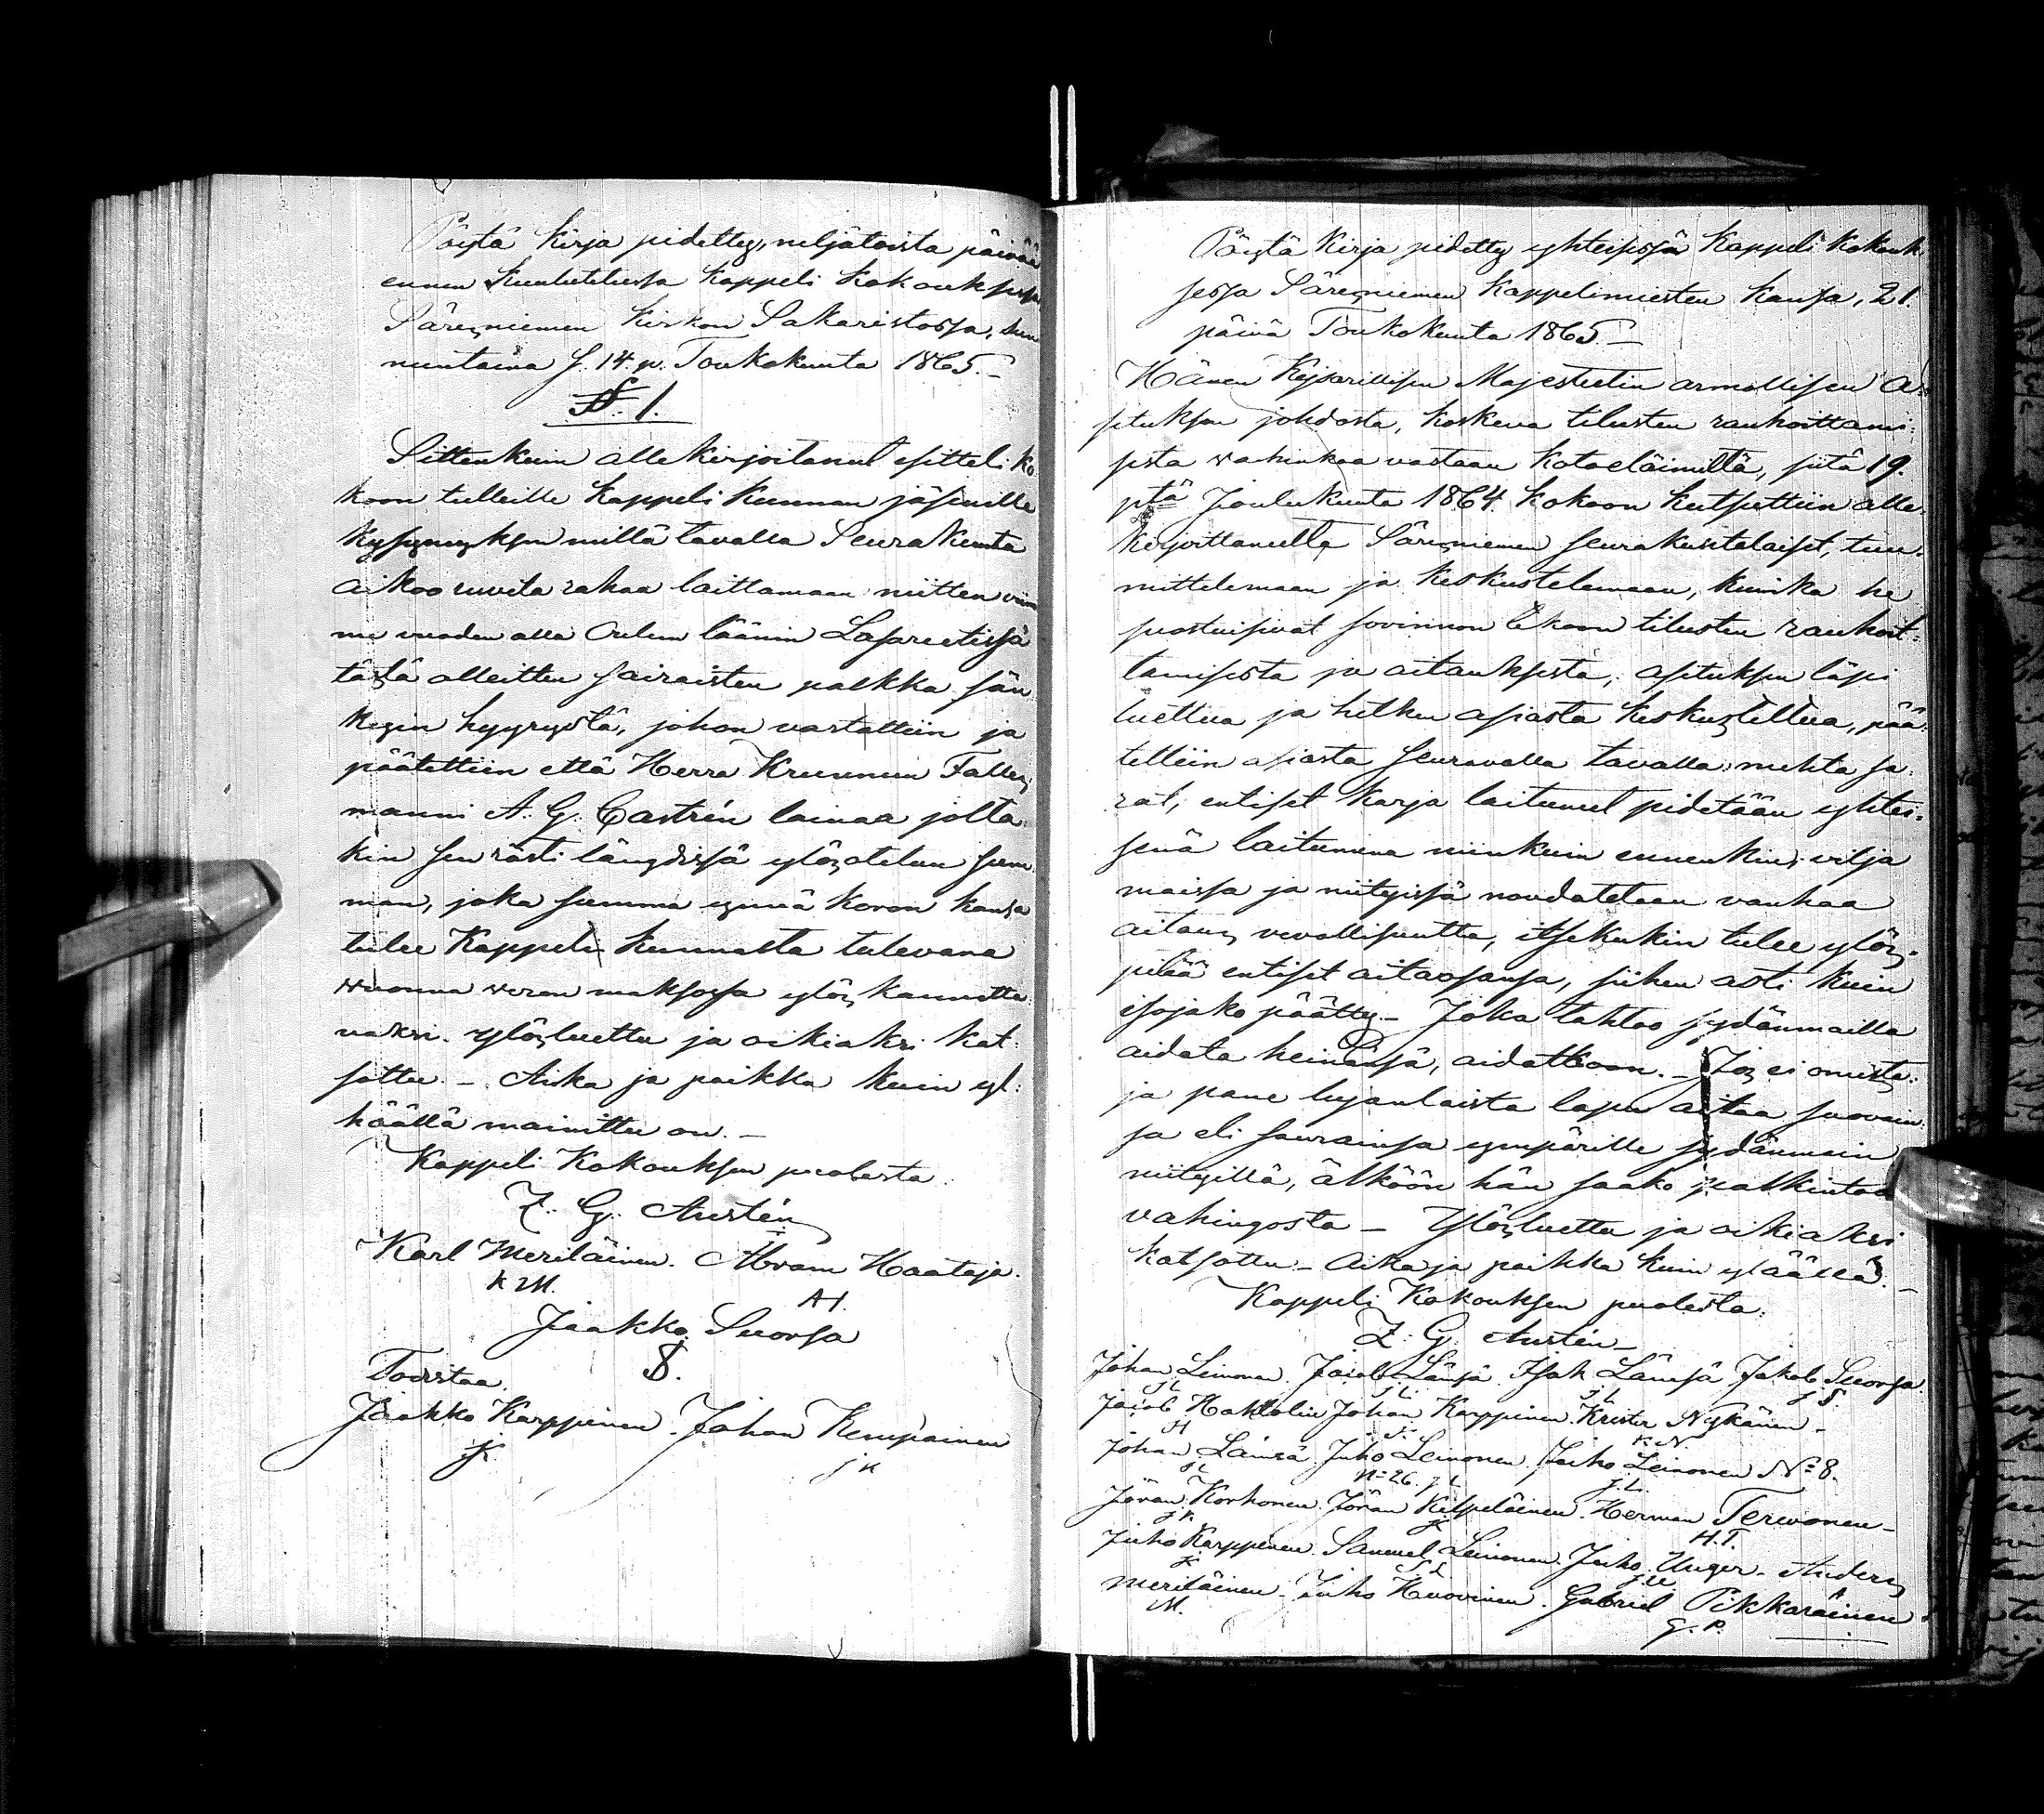 Pöytä Kirja pidetty, neljätoista päivää
ennen kuulutetussa Kappeli Kokouksessa
Säresniemen Kirkon Sakaristossa, sun
nuntaina s. 14. p. Toukokuuta 1865.–
§. 1.
Sittenkuin allekirjoitanut esitteli ko
koon tulleille Kappeli Kunnan jäsenille
kysymyksen millä tavalla Seurakunta
aikoo ruveta rahaa laittamaan niitten viim
me vuoden alla Oulun läänin Lasareetissä
tästä olleitten sairaisten palkka sän
kyin hyyrystä, johon vastattiin ja
päätettiin että Herra Kruunun Falles
manni A. G. Castrén lainaa jolta
kin sen rästi längdissä ylösotetun sum
man, joka summa ynnä koron kansa
tulee Kappeli kunnasta tulevana
vuonna veron maksossa ylös kannetta
vaksi. Ylösluettu ja oikiaksi kat:
sottu. – Aika ja paikka kuin yl:
häällä mainittu on. –
Kappeli Kokouksen puolesta
Z. G. Austén
Karl Meriläinen. Abram Haataja.
K M. AH.
Jaakko Suorsa
S.
Todistaa.
Jaakko Karppinen. Johan Kemppainen
JK JK
Pöytä Kirja pidetty yhteisessä Kappeli Kokouk:
sessa Säresniemen Kappelimiesten kansa, 21.
päivä Toukokuuta 1865.–
Hänen Keisarillisen Majesteetin armollisen A:
setuksen johdosta, koskeva tilusten rauhoittami:
sista vahinkoa vastaan kotoeläimiltä, siitä 19.
stä Joulukuuta 1864. kokoon kutsuttiin alle:
kirjoittaneelta Säresniemen seurakuntalaiset, tuu:
mittelemaan ja keskustelemaan, kuinka he
suostuisivat sovinnon tekoon tilusten rauhoit:
tamisesta ja aitauksesta, asetuksen läpi
luettua ja hetken asiasta keskusteltua, pää:
tettiin asiasta seuravalla tavalla: mehtä sa:
rat, entiset karja laitumet pidetään yhtei:
senä laitumena niinkuin ennenkin; vilja
maissa ja niityissä noudatetaan vanhaa
aitaus velvollisuutta, itsekukin tulee ylös
pitää entiset aitaosansa, siihen asti kuin
isojako päätty. – Joka tahtoo sydänmailla
aidata heinänsä, aidatkoon. – Jos ei omista:
ja pane lujanlaista lapu aitaa suovain:
sa eli saurainsa ympärille sydänmain
niityillä, älköön hän saako palkintoa
vahingosta – Ylösluettu ja oikiaksi
katsottu – Aika ja paikka kuin ylläällä. –
Kappeli Kokouksen puolesta:
Z. G. Austén –
Johan Leinonen. Jacob Länsä. Isak Länsä Jakob Suorsa.
JL JL. I L J S.
Jacob Johan Karppinen. Krister Nykänen –
K N.
Johan Länsä Juho Leinonen Juho Leinonen No 8.
JL No 26 J L J. L.
Jöran Korhonen. Jöran Kilpeläinen. Herman Tervonen –
J K. JK H. T.
Juho Karppinen. Samuel Leinonen. Juho Unger – Anders
JK S L J. U
Meriläinen. Juho Huovinen. Gabriel Pikkarainen
M. G. P.